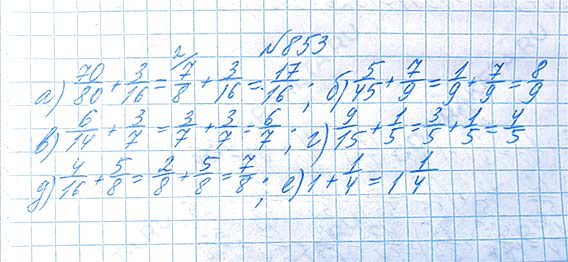 №853
а) 70/80 + 3/16 = 7/8 ²/ + 3/16 = 17/16; б) 5/45 + 7/9 = 1/9 + 7/9 = 8/9
в) 6/14 + 3/7 = 3/7 + 3/7 = 6/7; г) 9/15 + 1/5 = 3/5 + 1/5 = 4/5
д) 4/16 + 5/8 = 2/8 + 5/8 = 7/8; е) 1 + 1/4 = 1 1/4